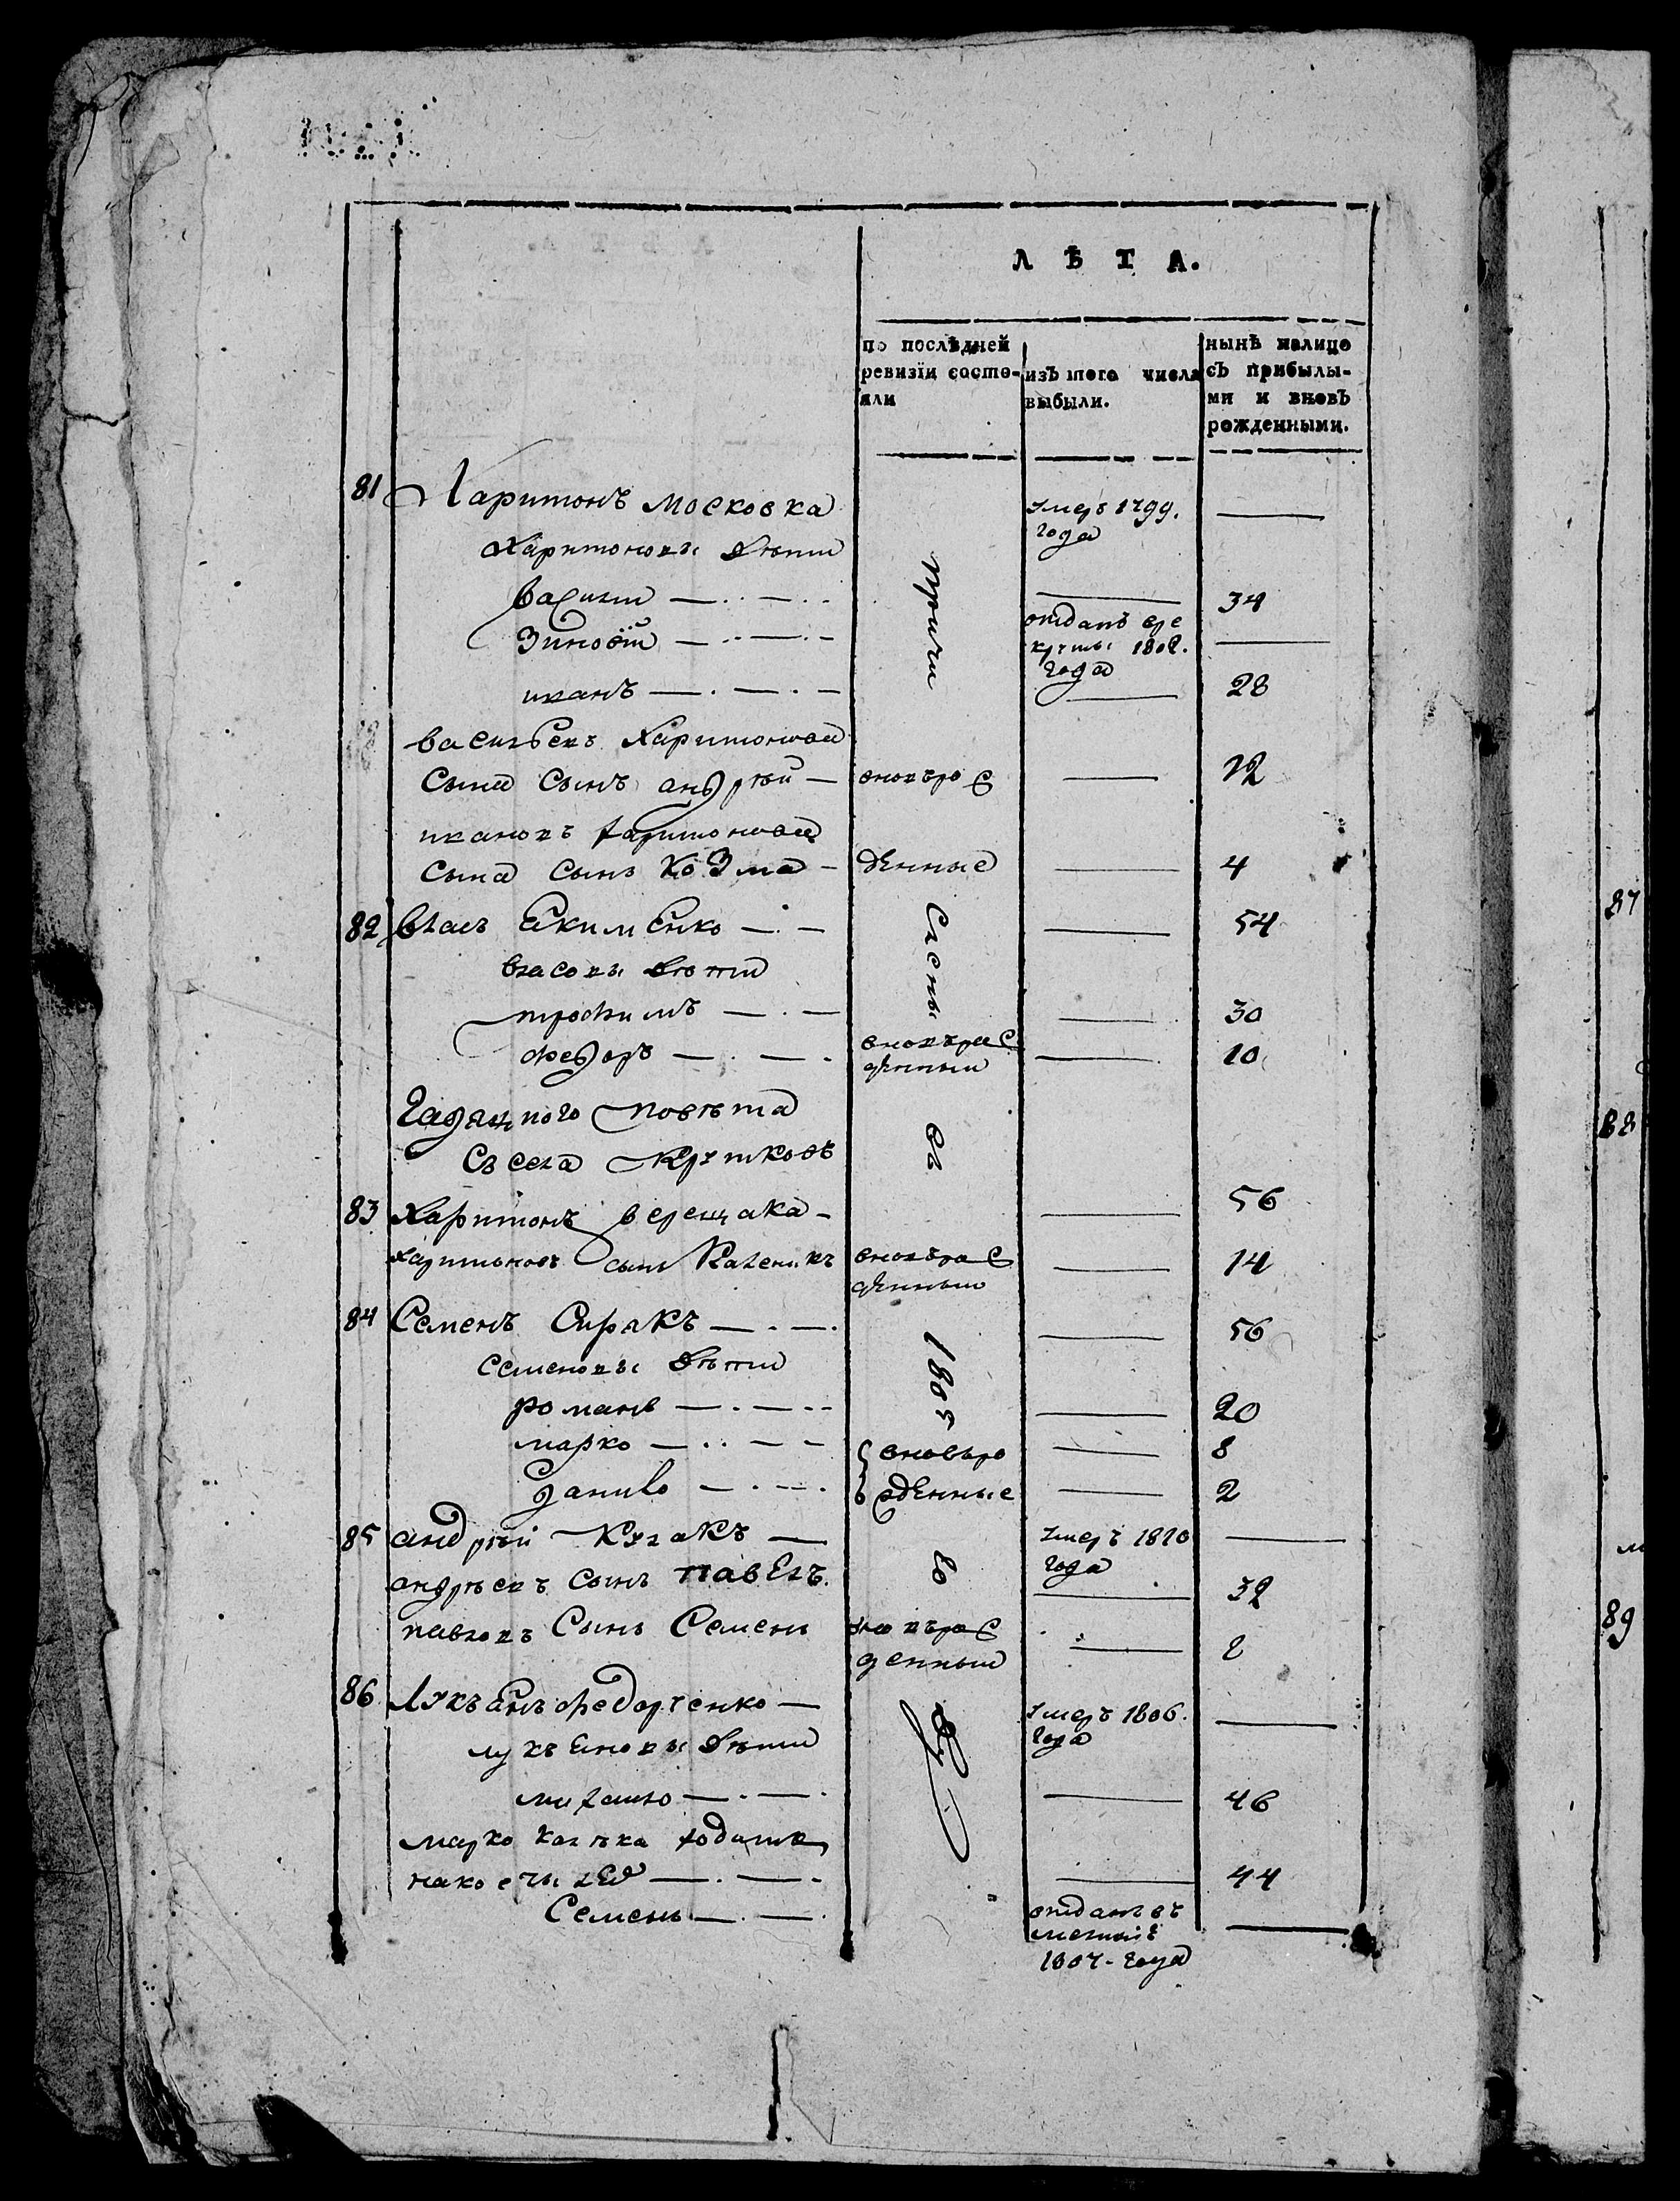 ЛѢТА.
по послѣдней ревизіи состояли
изъ того числа выбыли.
нынѣ налицо съ прибылыми и вновь рожденными.
81 Харитонъ Московка умеръ 1799. года —
Харитоновы дѣти
Василій — 34
Зиновій отданъ вре круты 1808. года —
иванъ — 28
васильевъ Харитонова
сына сынъ андрѣй вновъро ж — 12
ивановъ харитонова
сына сынъ Козма денные — 4
82 Власъ Екименко — 54
власовы дѣти
трофимъ — 30
федоръ вновърож денный — 10
Гадяцкого повѣта
съ села Крутковъ
83 Харитонъ верещака — 56
харитоновъ сынъ Каленикъ вновърож денный — 14
84 Семенъ Сиракъ — 56
семеновы дѣти
романъ — 20
марко вновъро — 8
данило жденные — 2
85 андрѣй Кулакъ умеръ 1810 года —
андрѣевъ сынъ павелъ — 32
павловъ сынъ Семенъ вновърож денный — 2
86 Лукъянъ федорченко умеръ 1806. года —
лукъяновы дѣти
михайло — 46
марко
— 44
Семенъ отданъ въ 1807. года —
причи
слены
въ
180
87
88
89